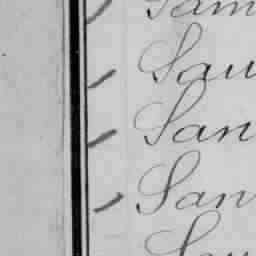 Sam
Sau
San
San